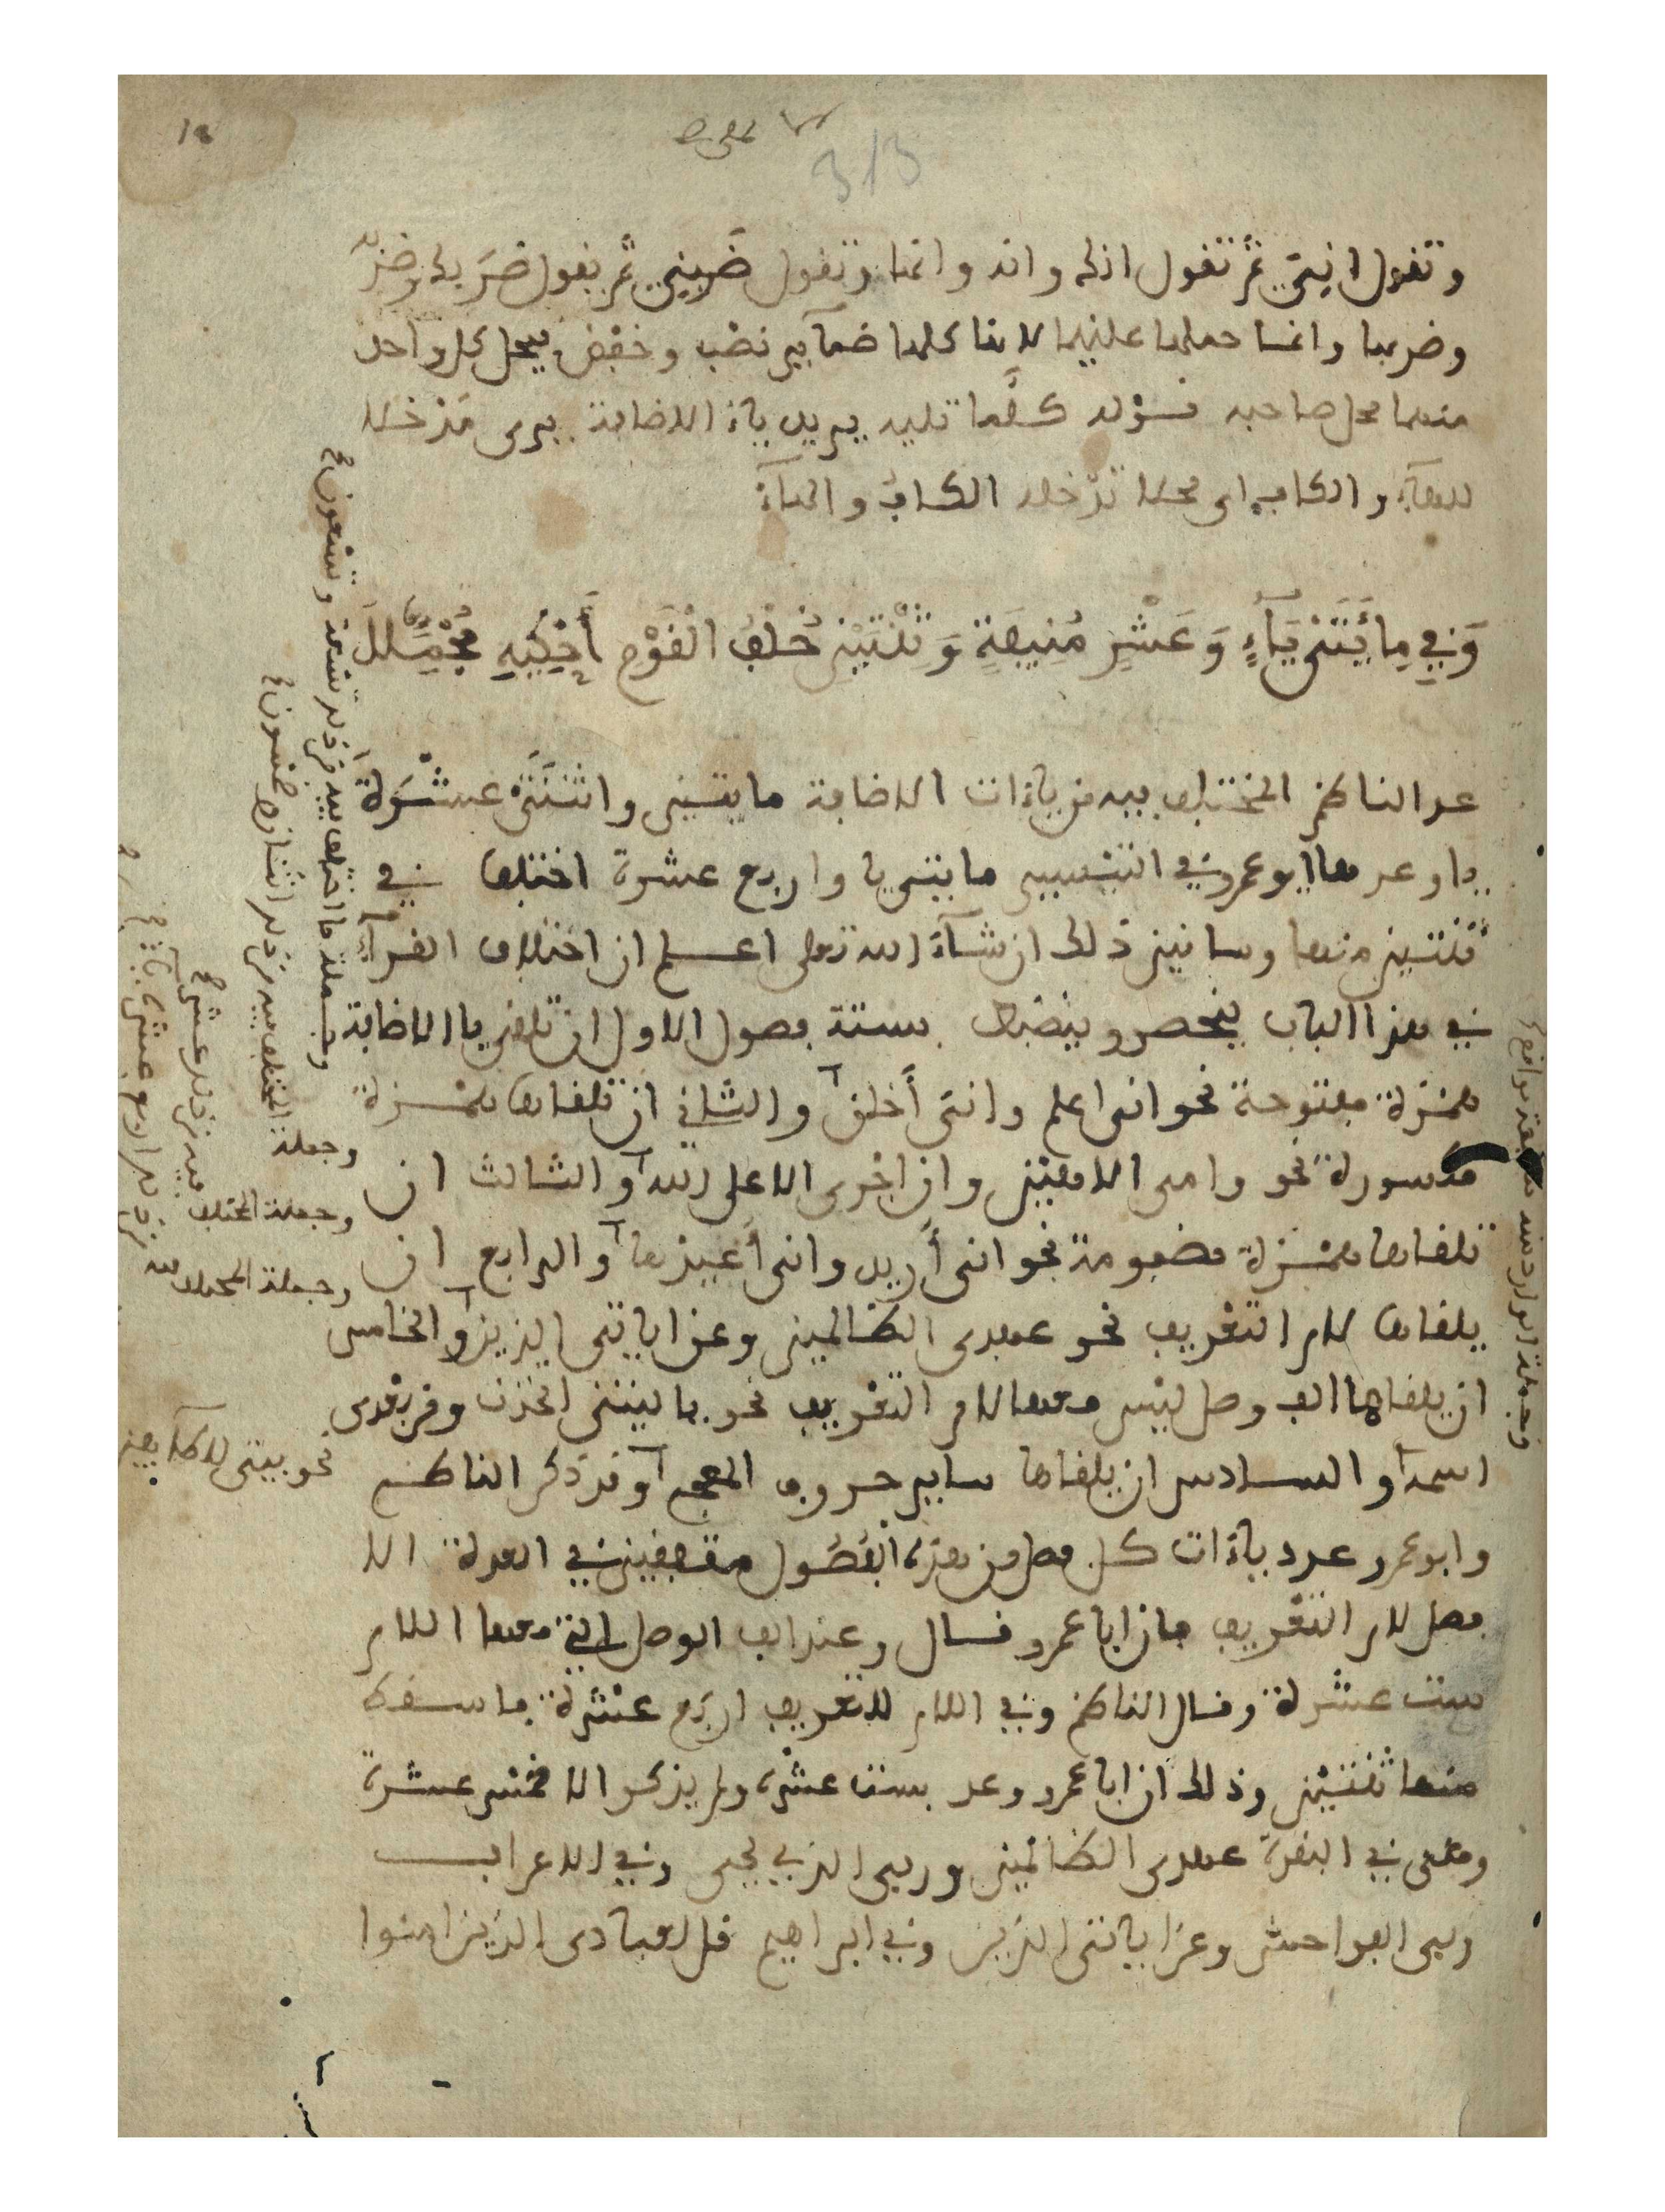 313
وتقول اني ثم تقول انك وانه وانها وتقول ضربني ثم يقول ضربك وضربه
وضربها وانما حملها عليهما لانها كلها ضمآير نصب وخفض يحل كل واحد
منهما محل صاحبه فقوله كلما تليه يريد ياء الاضافة يرى مدخلا
للهآء والكاف اى محلا تدخله الكاف والهآء
وَفِي مِائَتَيْ يَآءٍ وَعَشْرٍ مُنِيفَةٍ وَثِنْتَيْنِ خُلْفُ الْقَوْمِ أَحْكِيهِ مُجْمَلَا
عد الناظم المختلف فيه من ياءات الاضافة مايتين واثنتَىْ عشْرَة
ياء وعدها ابو عمرو في التيسير مايتي ياء واربع عشرة اختلفا في
ثنتين منها وسابين ذلك ان شآء الله تعلى اعلم ان اختلاف القرآء
في هذا الباب ينحصر وينضبط بستة فصول الاول ان تلقى يا الاضافة
همزة مفتوحة نحو انى اعلم وانى أخلق والثاني ان تلقاها همزة
مكسورة نحو وامى الالهين وان اجرى الا على الله والثالث ان
تلقاها همزة مضمومة نحو انى أريد وانى أعيذها والرابع ان
يلقاها لام التعريف نحو عهدى الظالمين وعن اياتى الذين والخامس
ان يلقاها الف وصل ليس معها لام التعريف نحو يا ليتنى اتخذت ومن بعدى
اسمه والسادس ان يلقاها ساير حروف المعجم وقد ذكر الناظم
وابو عمرو عدد ياءات كل فصل من هذه الفصول متفقين في العدة الا
فصل لام التعريف فان ابا عمرو قال وعند الف الوصل التي معها اللام
ست عشرة وقال الناظم وفي اللام للتعريف اربع عشرة فاسقط
منها ثنتين وذلك ان ابا عمرو وعد بست عشرة ولم يذكر الا خمس عشرة
وهى في البقرة عهدى الظالمين وربى الذي يحيى وفي الاعراف
ربى الفواحش وعن اياتى الذين وفي ابراهيم قل لعبادى الذين امنوا
وجملة ما اختلف فيه من ذلك تسعة وتسعون
وجملة المختلف فيه من ذلك اثنان وخمسون
وجملة المختلف فيه من ذلك عشر
وجملة المختلف فيه من ذلك اربع عشرة ياء
نحو بيتى للطايفين